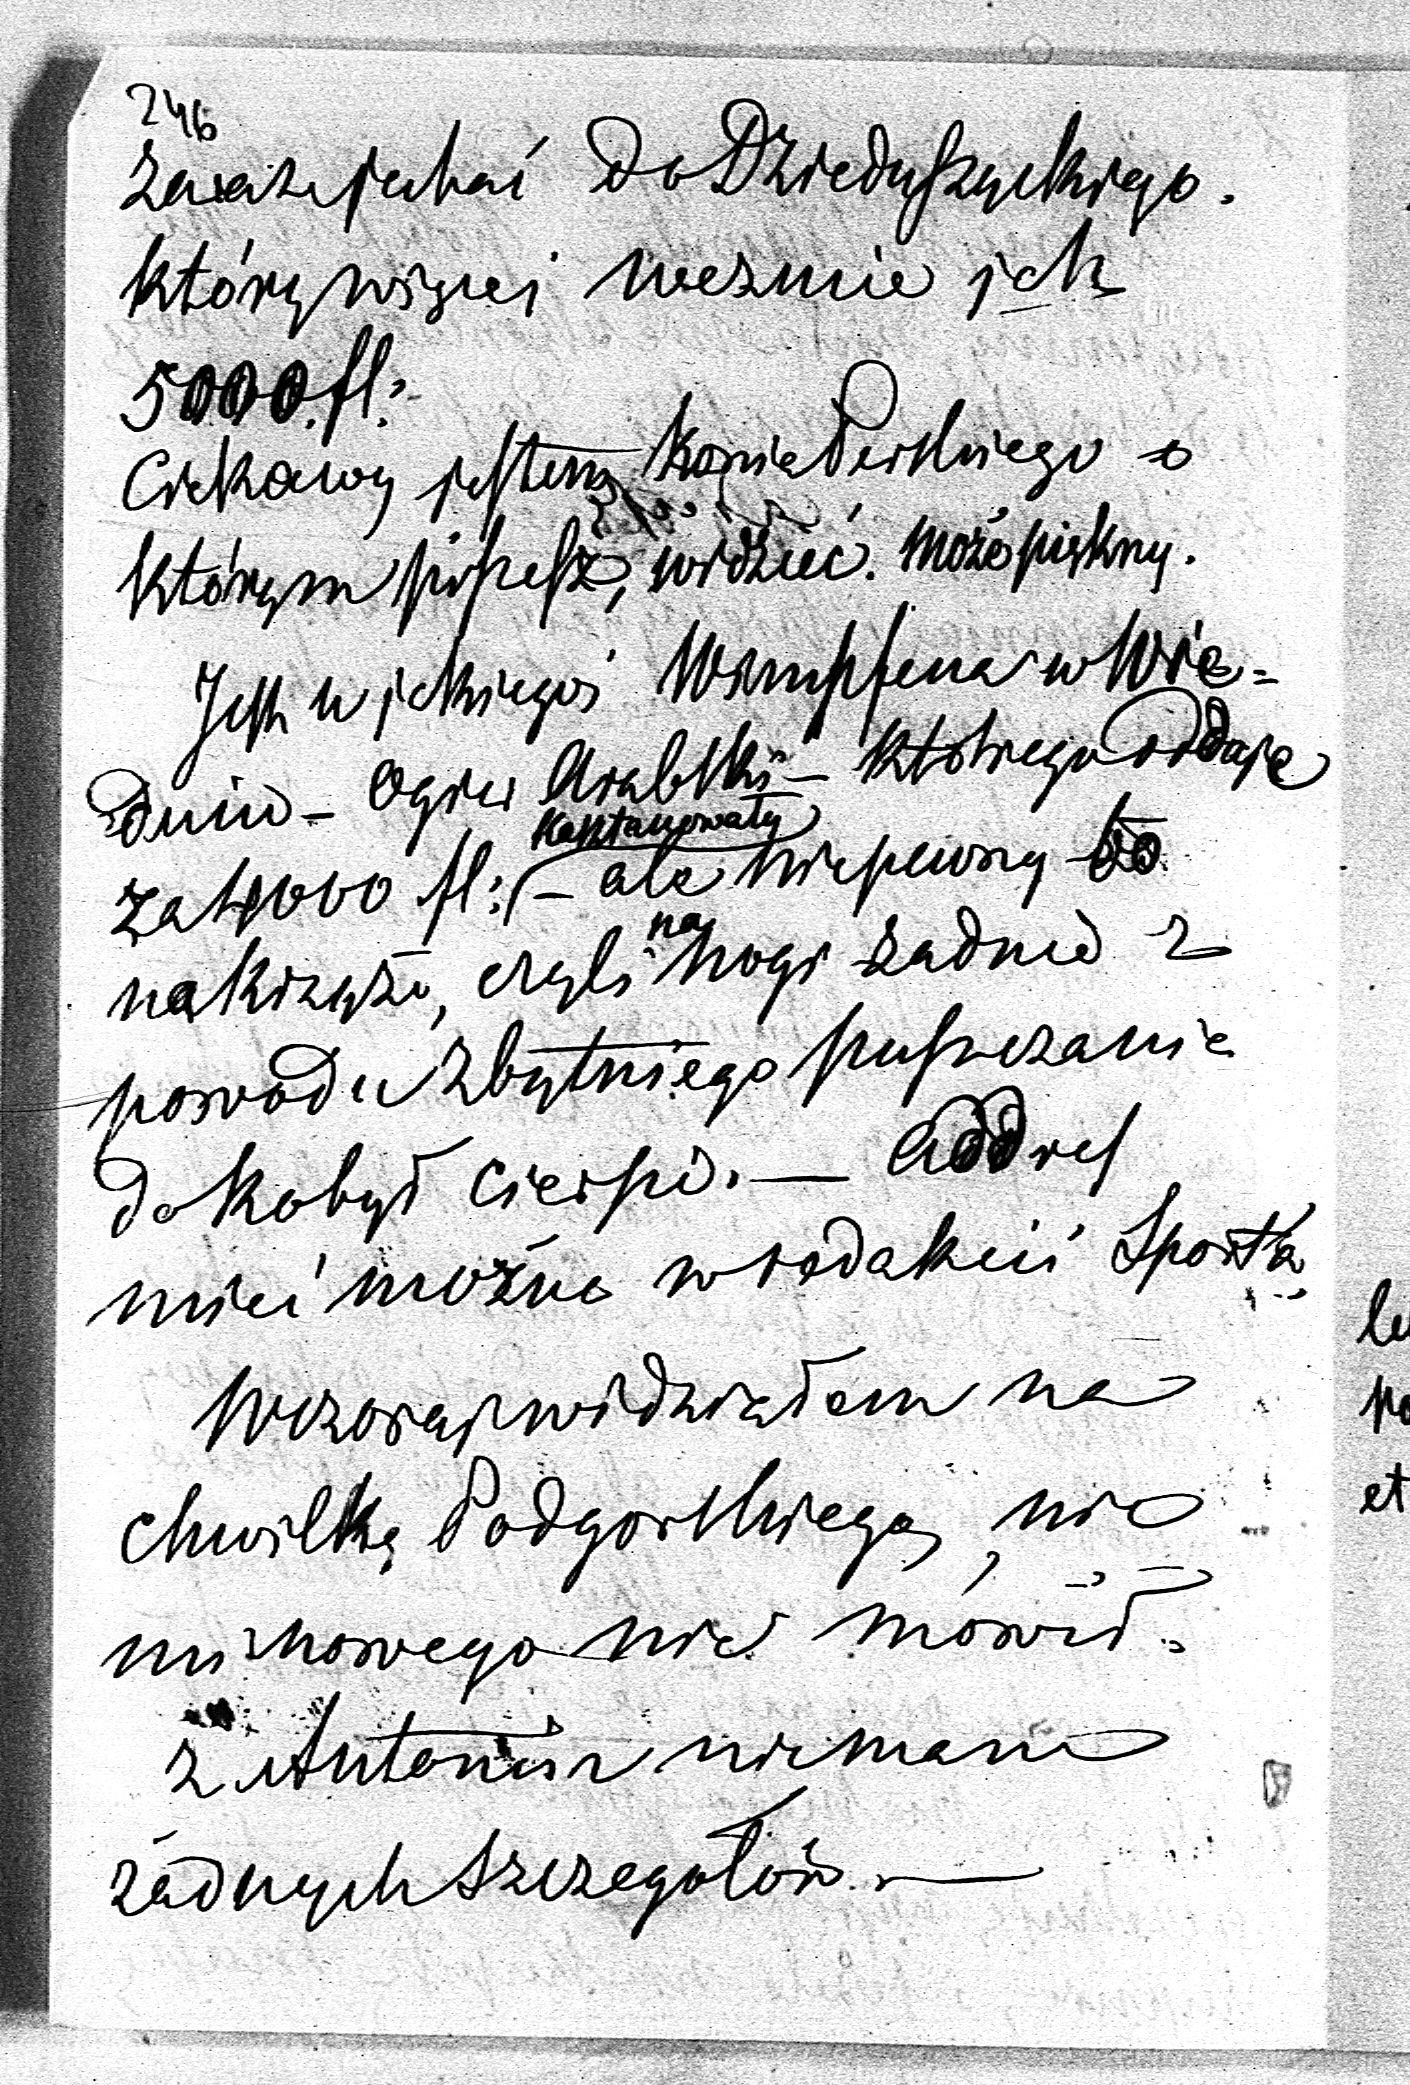 246
zaraz jechać do Dzieduszyckiego.
który więcej weźmie jak
5000. fl:
Ciekawy jestem konia Perskiego o
którym piszesz, widzieć. może piękny.
Jest u jakiegoś Wimpfena w Wie-
dniu – Ogier Arabski – którego oddaje
kasztanowaty
za 4000 fl: – ale niepewny bo
na krzyże, czyli na nogi zadnie z
powodu zbytniego puszczania
do kobył cierpi. — Addres
mieć można w redakcii Sporta
Wczoraj widziałem na
chwilkę Podgorskiego, nic
mi nowego nie mówił.
z Antonin nie mam
żadnych szczegołów. —
le
po
et